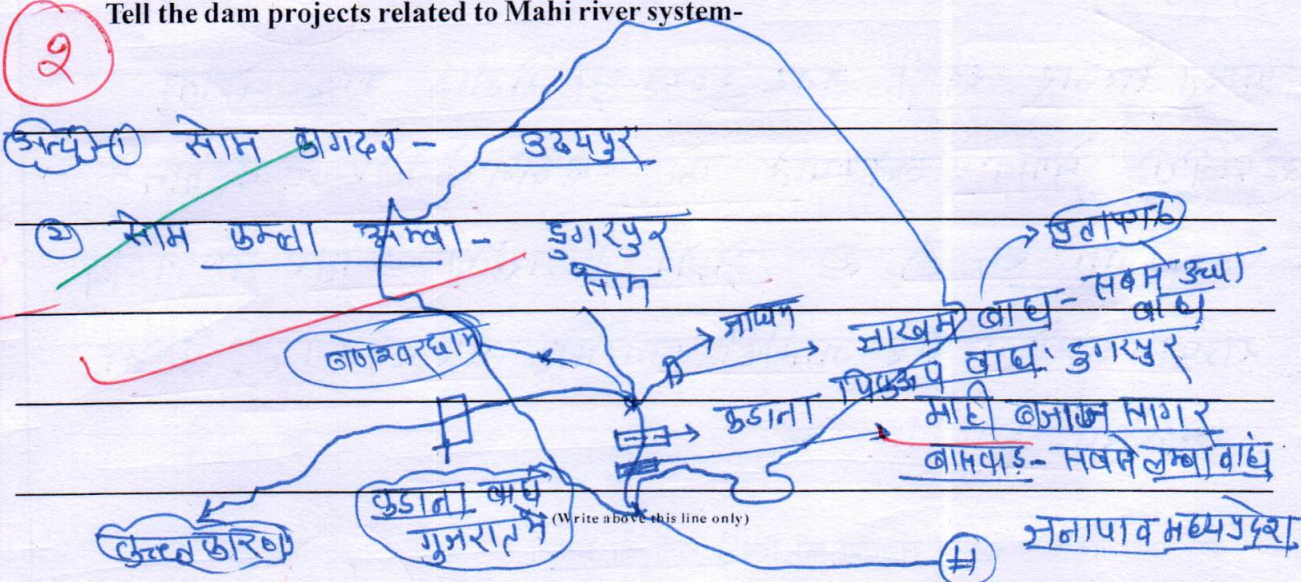 Tell the dam projects related to Mahi river system-
२
① सोम कागदर - उदयपुर
② सोम कमला अम्बा - डुगरपुर
सोम
प्रतापगढ
जाखम
जाखम बांध - सबसे ऊचा बांध
बेणेश्वर धाम
पिकअप बांध: डुगरपुर
कडाना
माही बजाज सागर
बासवाड़ - सबसे लम्बा बांध
कडाना बांध
गुजरात मे
(Write above this line only)
मध्यप्रदेश